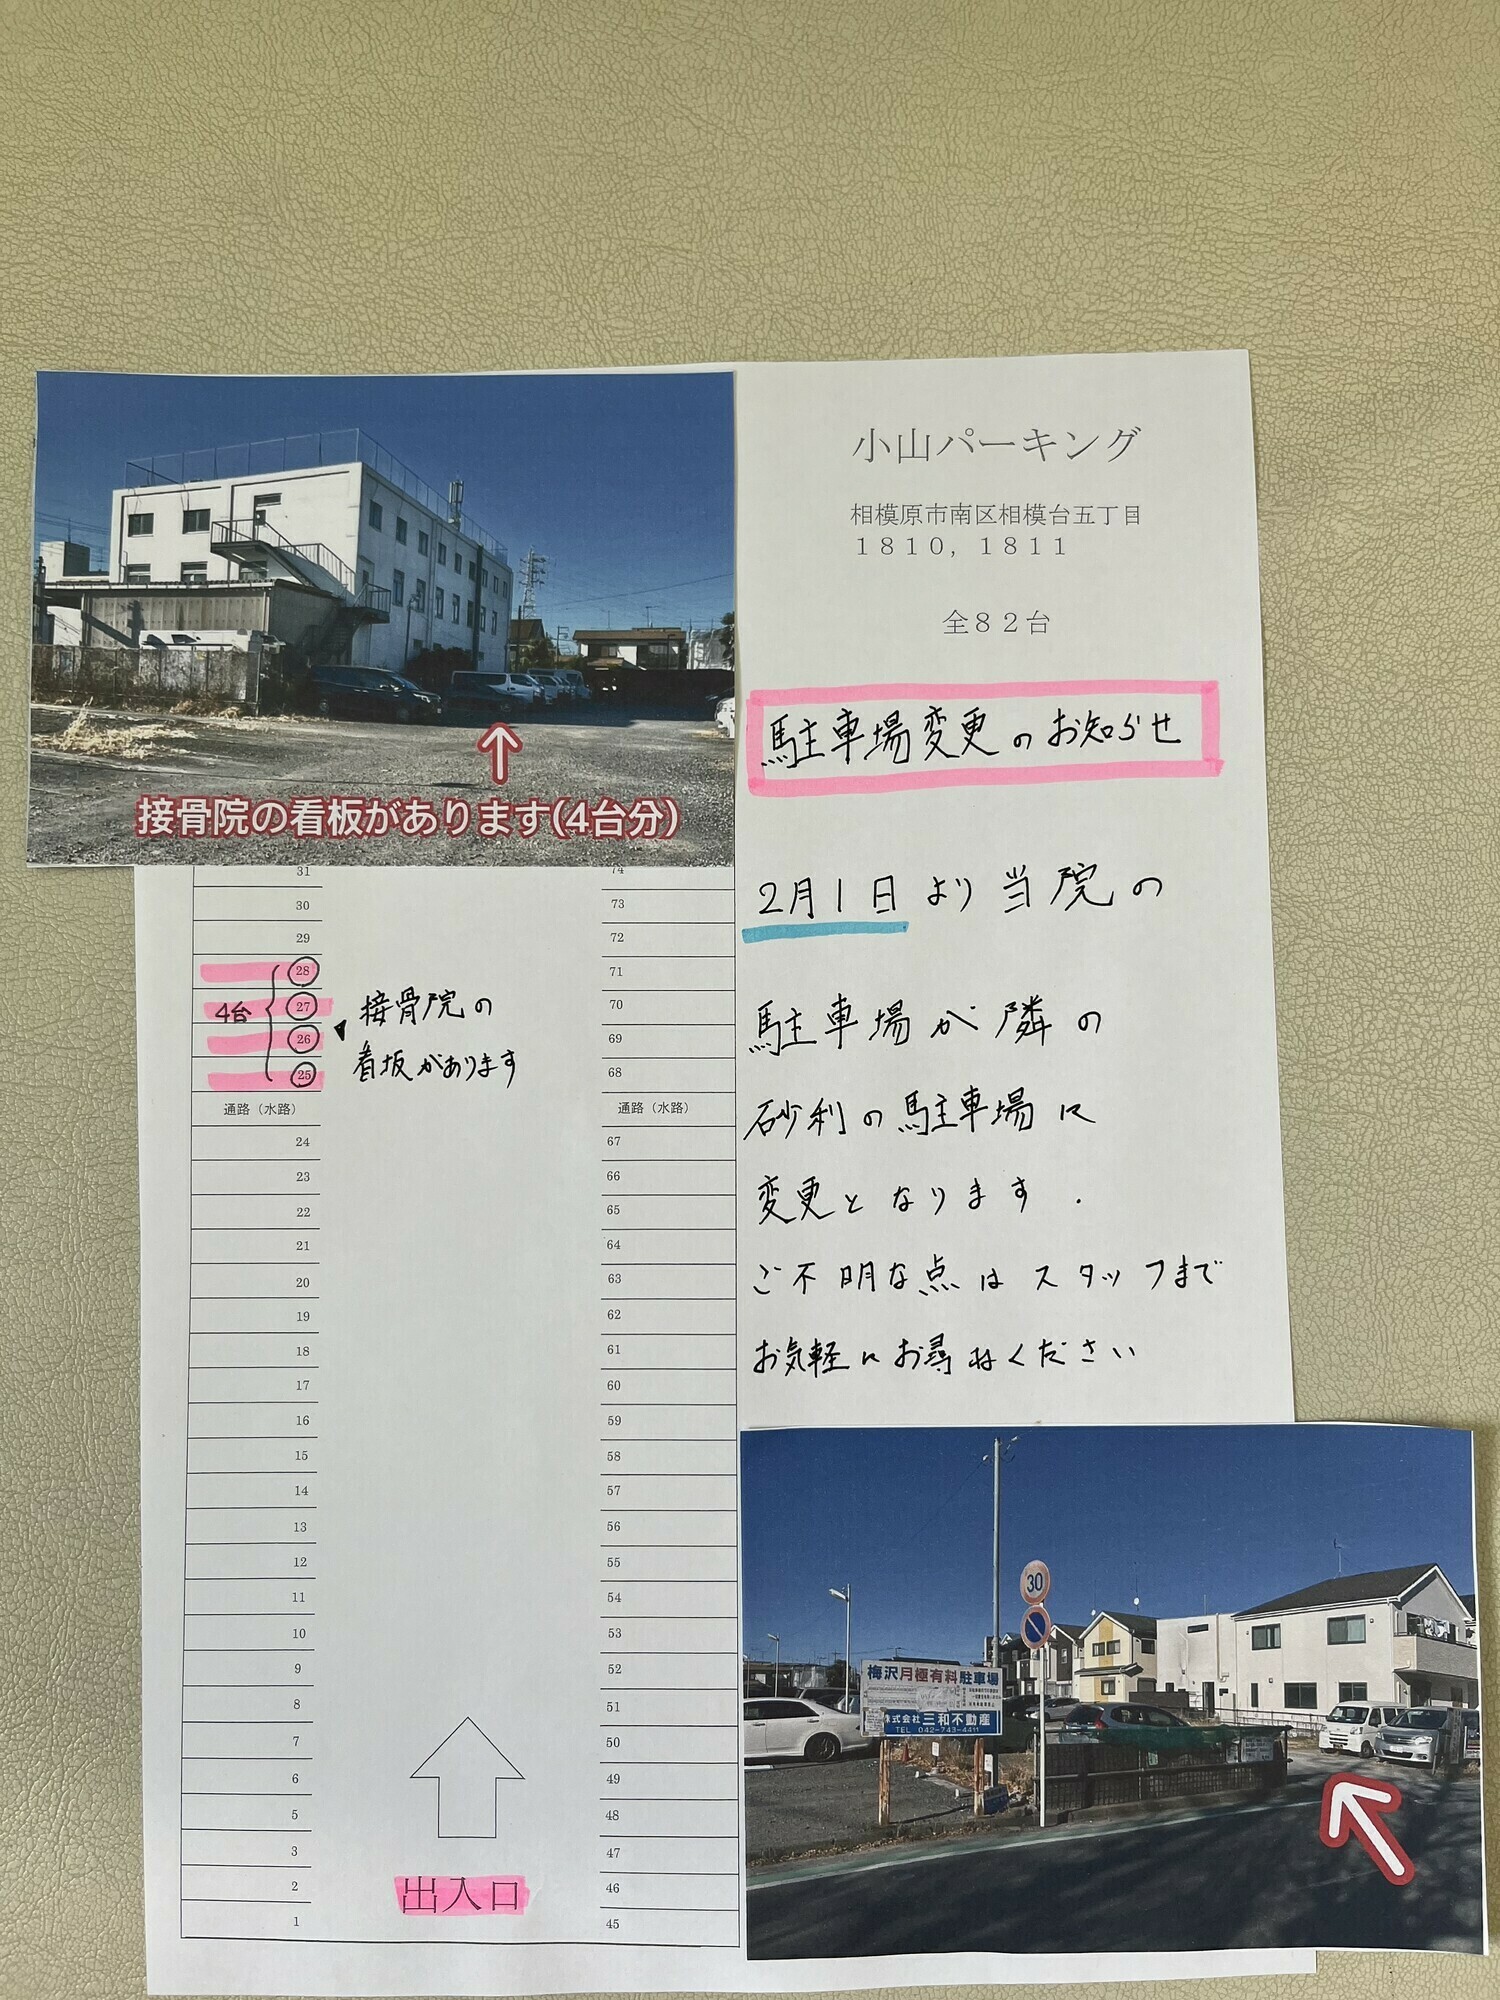 接骨院の看板があります(4台分)
小山パーキング
相模原市南区相模台五丁目
１８１０，１８１１
全８２台
駐車場変更のお知らせ
2月1日より当院の
駐車場が隣の
砂利の駐車場に
変更となります.
ご不明な点はスタッフまで
お気軽にお尋ねください
31
30
29
28
27
26
25
4台
接骨院の
看板があります
通路（水路）
24
23
22
21
20
19
18
17
16
15
14
13
12
11
10
9
8
7
6
5
3
2
1
74
73
72
71
70
69
68
通路（水路）
67
66
65
64
63
62
61
60
59
58
57
56
55
54
53
52
51
50
49
48
47
46
45
出入口
30
梅沢月極有料駐車場
株式会社三和不動産
TEL 042-743-4411